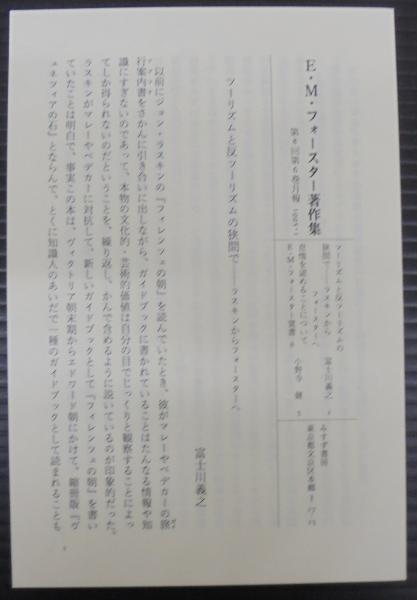 E・M・フォースター著作集
第8回第6巻月報
ツーリズムと反ツーリズムの
狭間で――ラスキンから
フォースターへ
富士川義之
怠惰を認めることについて
小野寺 健
E・M・フォースター覚書 8
みすず書房
東京都文京区本郷
ツーリズムと反ツーリズムの狭間で――ラスキンからフォースターへ
富士川義之
以前にジョン・ラスキンの『フィレンツェの朝』を読んでいたとき、彼がマレーやベデガーの旅
行案内書をさかんに引き合いに出しながら、ガイドブックに書かれていることはたんなる情報や知
識にすぎないのであって、本物の文化的・芸術的価値は自分の目でじっくりと観察することによっ
てしか得られないのだということを、繰り返し、かんで含めるように説いているのが印象的だった。
ラスキンがマレーやベデガーに対抗して、新しいガイドブックとして『フィレンツェの朝』を書い
ていたことは明白で、事実この本は、ヴィクトリア朝末期からエドワード朝にかけて、縮冊版『ヴ
ェネツィアの石』とならんで、とくに知識人のあいだで一種のガイドブックとして読まれることも